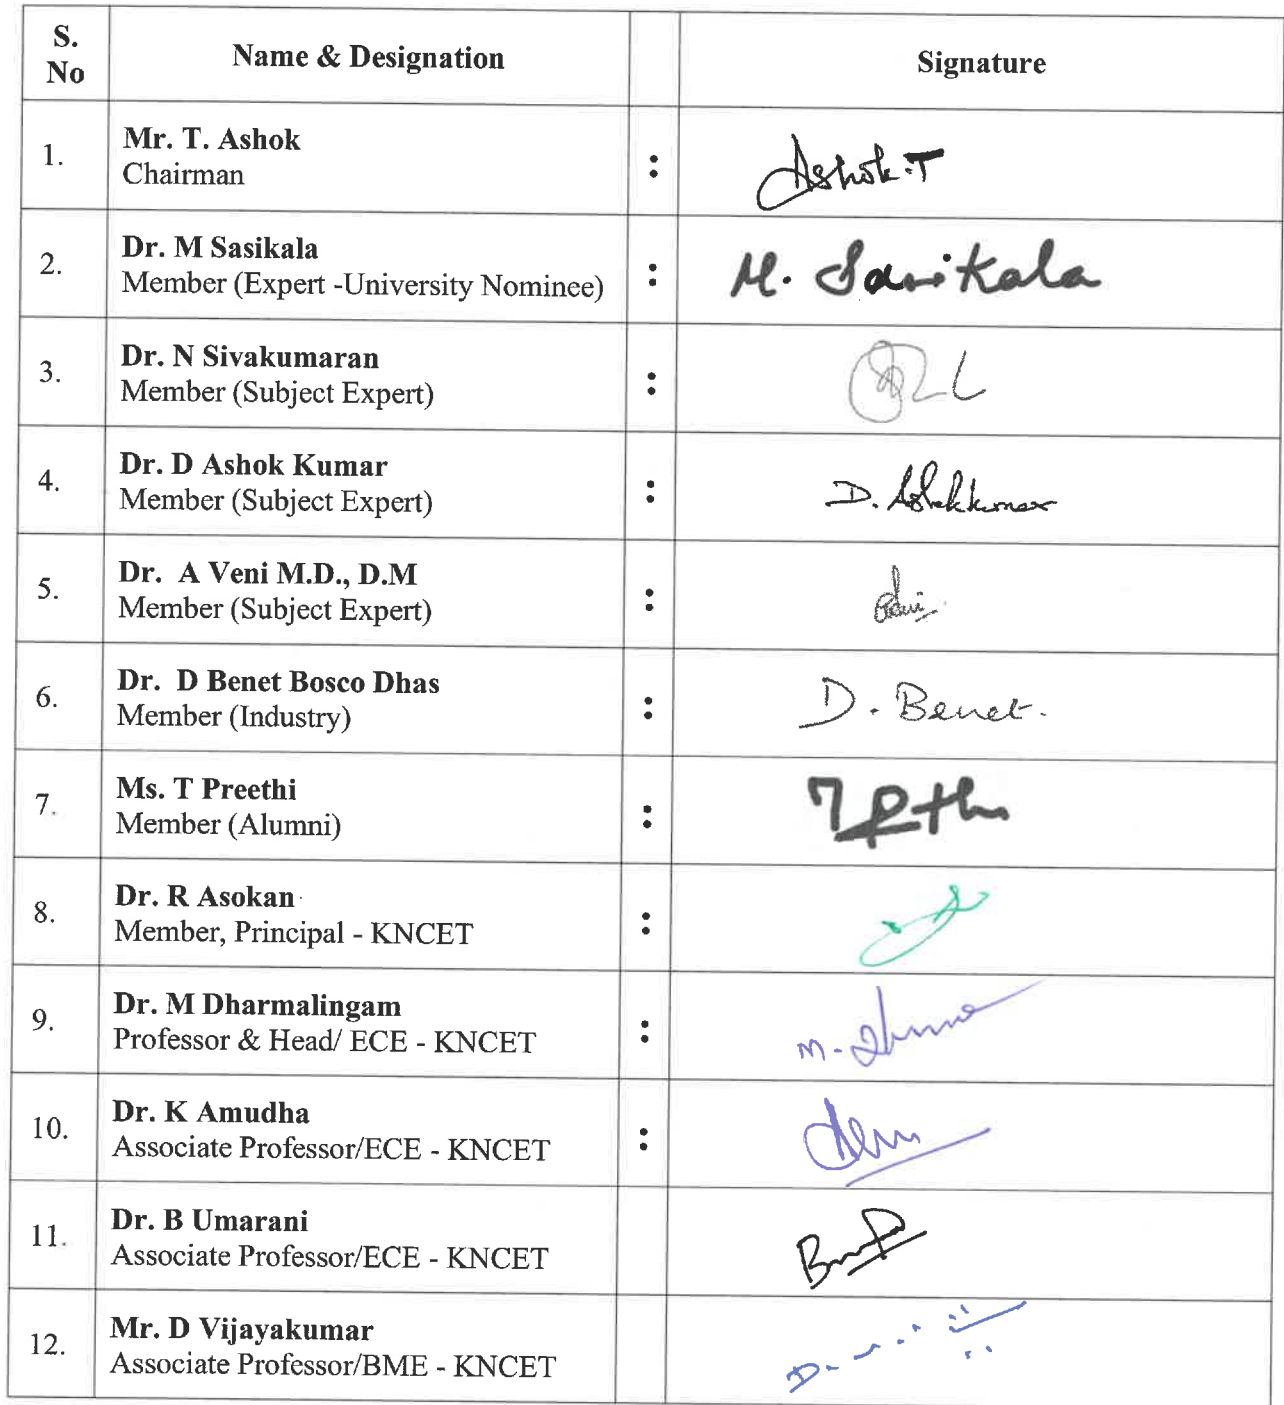 S. No Name & Designation Signature
1. Mr. T. Ashok : Ashok.T
Chairman
2. Dr. M Sasikala : M. Sasikala
Member (Expert -University Nominee)
3. Dr. N Sivakumaran :
Member (Subject Expert)
4. Dr. D Ashok Kumar : D. Ashokkumar
Member (Subject Expert)
5. Dr. A Veni M.D., D.M :
Member (Subject Expert)
6. Dr. D Benet Bosco Dhas : D. Benet.
Member (Industry)
7. Ms. T Preethi :
Member (Alumni)
8. Dr. R Asokan :
Member, Principal - KNCET
9. Dr. M Dharmalingam :
Professor & Head/ ECE - KNCET
10. Dr. K Amudha :
Associate Professor/ECE - KNCET
11. Dr. B Umarani
Associate Professor/ECE - KNCET
12. Mr. D Vijayakumar
Associate Professor/BME - KNCET